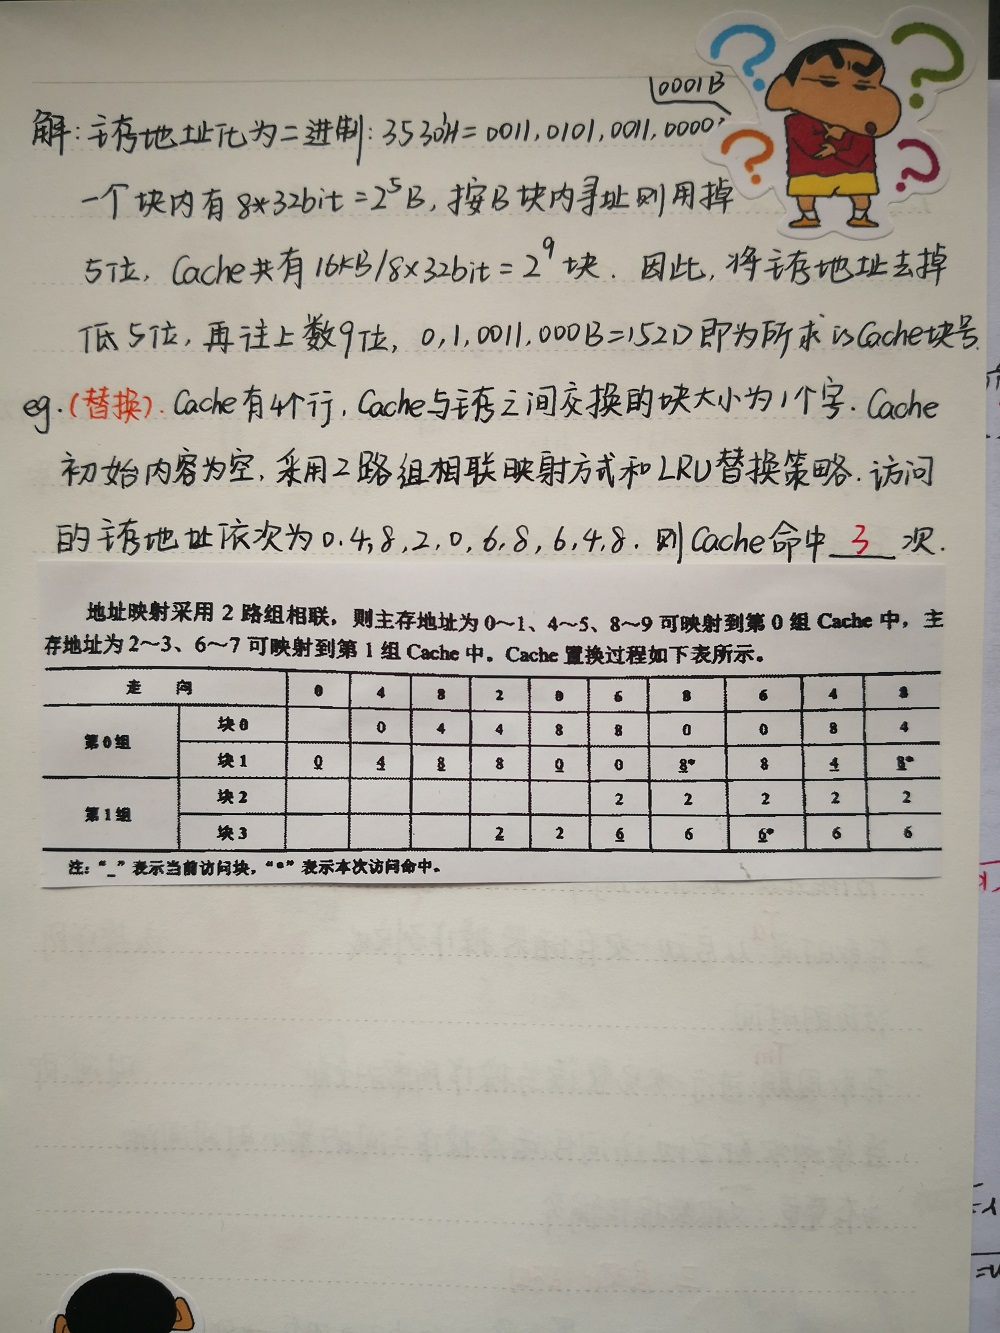 0001B
解:主存地址化为二进制:35301H=0011,0101,0011,0000
一个块内有8*32bit=2⁵B,按B块内寻址则用掉
5位,Cache共有16KB/8×32bit=2⁹块.因此,将主存地址去掉
低5位,再往上数9位,0,1,0011,000B=152D即为所求のCache块号.
eg.(替换).Cache有4个行,Cache与主存之间交换的块大小为1个字.Cache
初始内容为空,采用2路组相联映射方式和LRU替换策略.访问
的主存地址依次为0.4,8,2,0,6,8,6,4,8.则Cache命中 3 次.
地址映射采用 2 路组相联,则主存地址为 0~1、4~5、8~9 可映射到第 0 组 Cache 中,主
存地址为 2~3、6~7 可映射到第 1 组 Cache 中。Cache 置换过程如下表所示。
走 向 0 4 8 2 0 6 8 6 4 8
第0组 块0 0 4 4 8 8 0 0 8 4
块1 0 4 8 8 0 0 8* 8 4 8*
第1组 块2 2 2 2 2 2
块3 2 2 6 6 6* 6 6
注:“_”表示当前访问块,“*”表示本次访问命中。